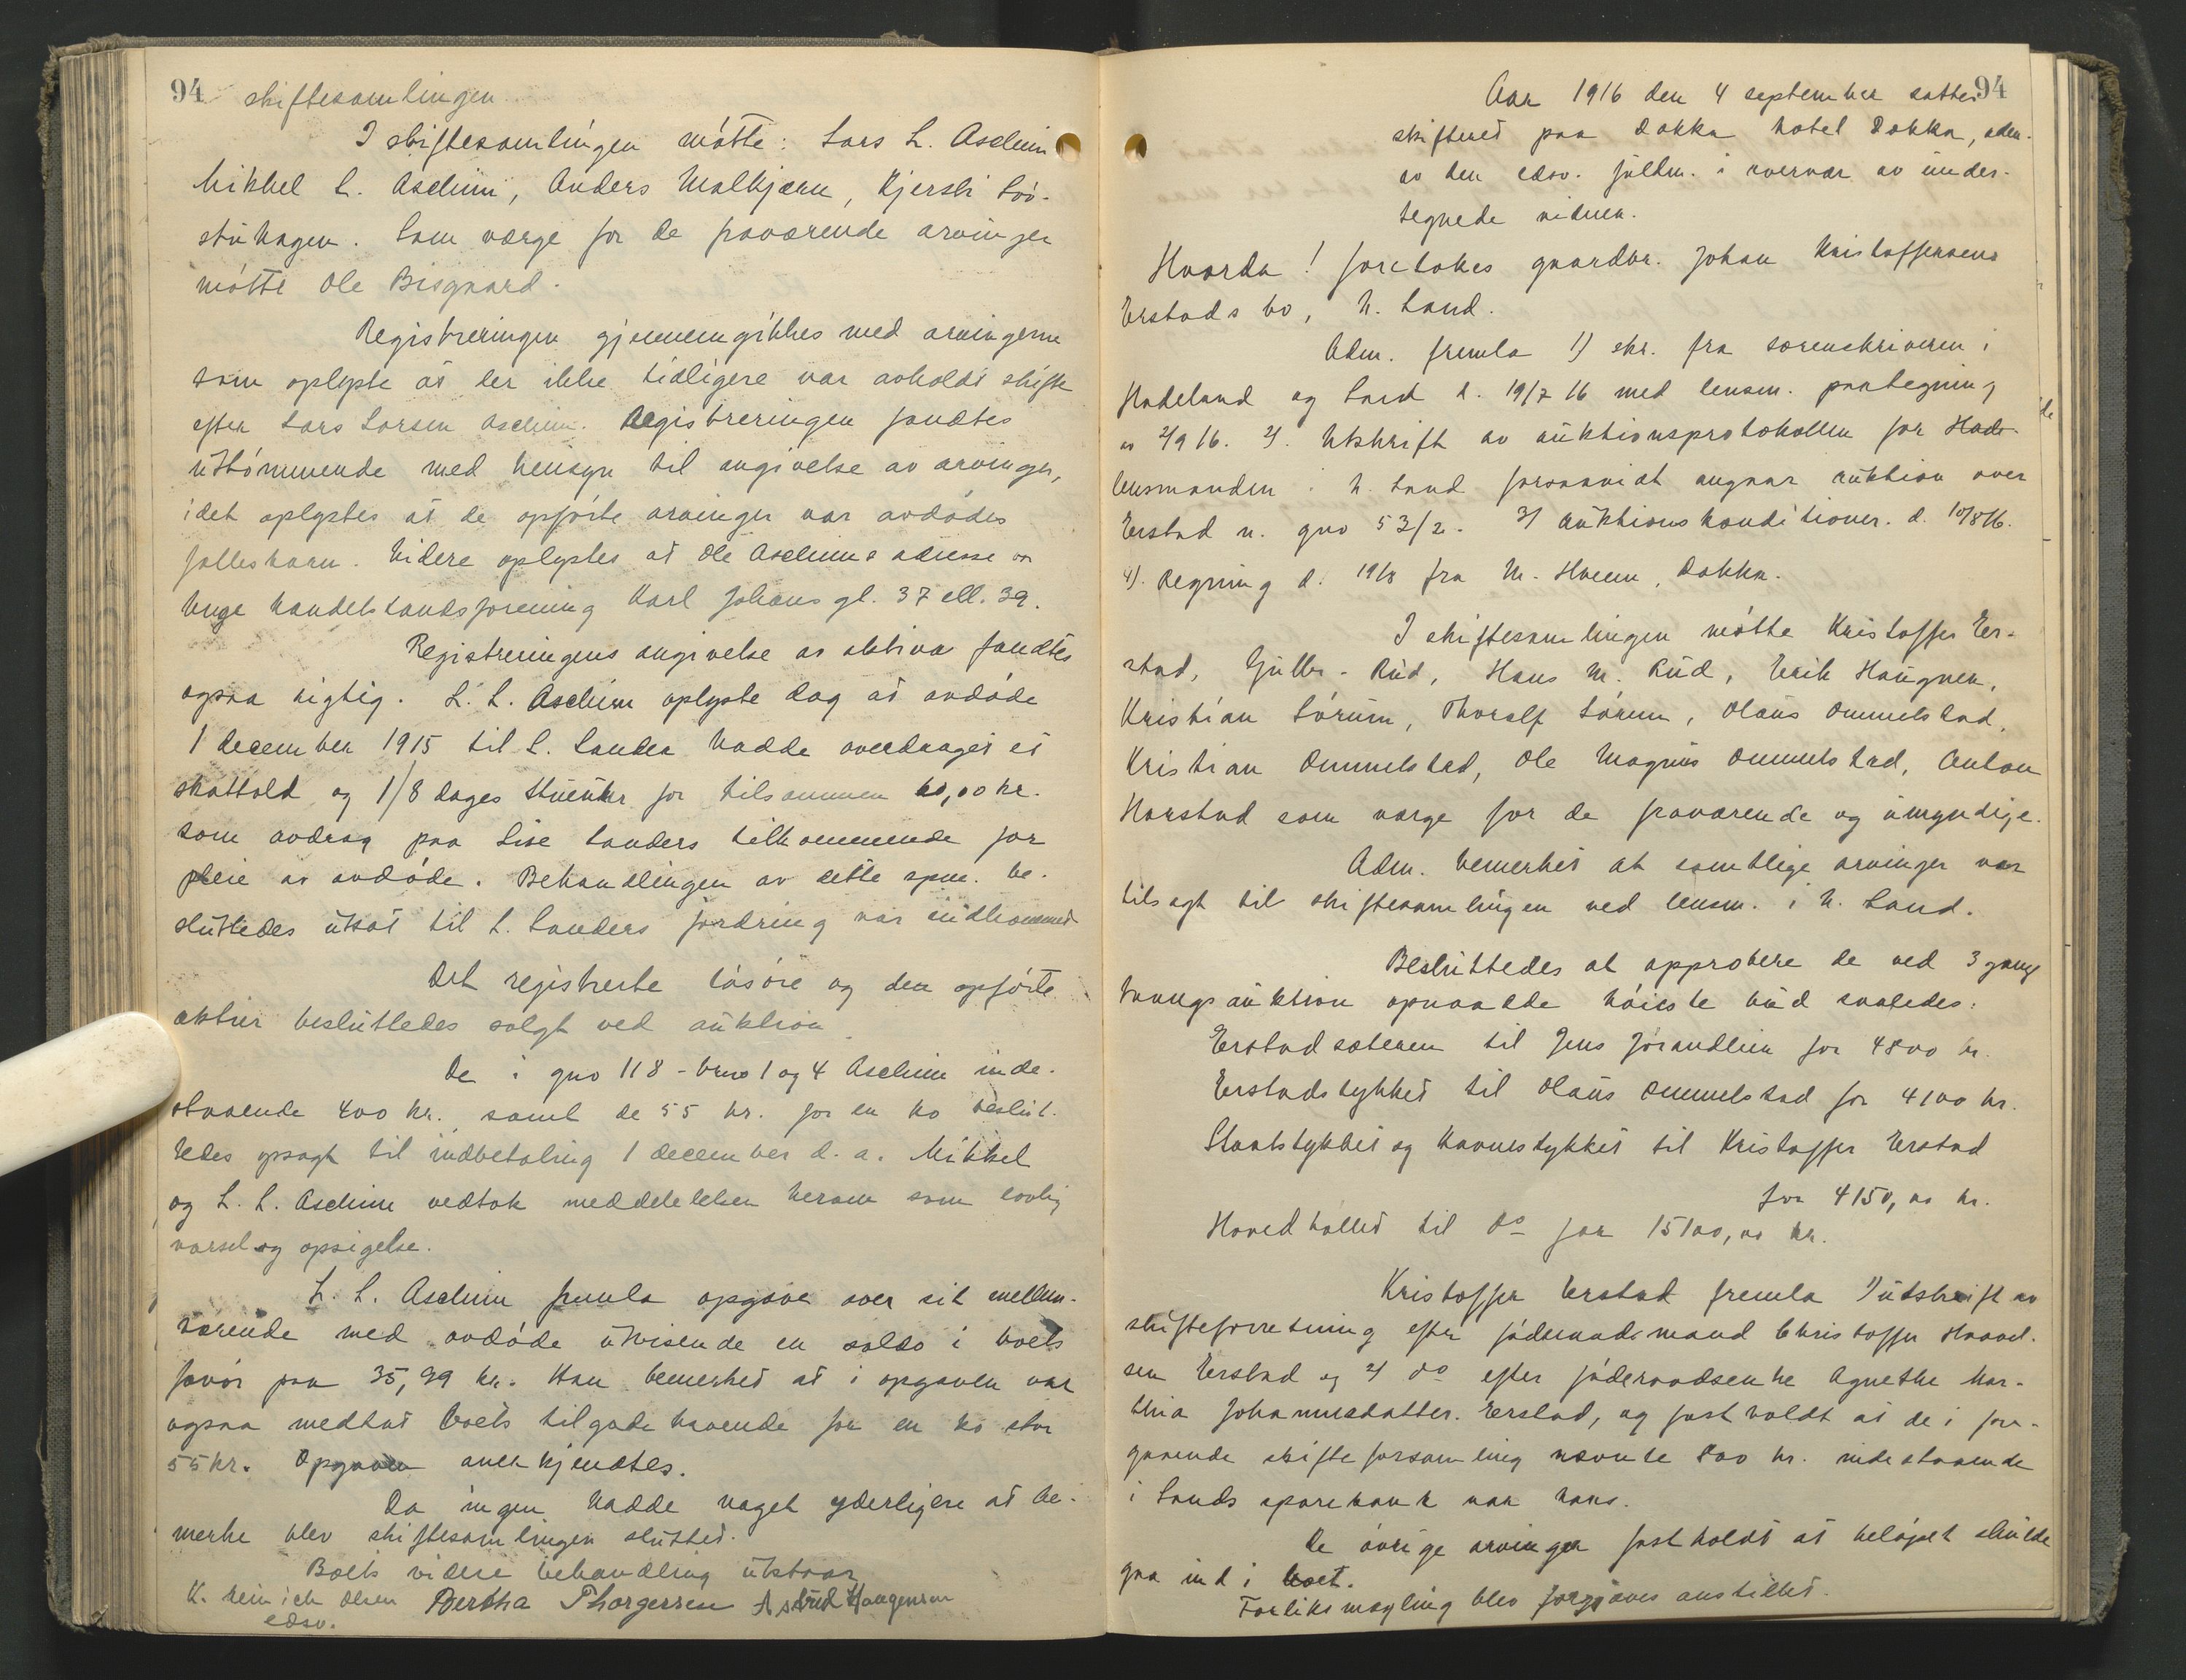 94 skiftesamlingen.
I skiftesamlingen møtte: Lars L. Aschim
Mikkel L. Aschim, Anders Molkjærn, Kjersti Lov-
stuhagen. Som værge for de fraværende arvinger
møtte Ole Bisgaard.
Registreringen gjennemgikkes med arvingerne
som oplyste at der ikke tidligere var avholdt skifte
efter Lars Larsen Aschim. Registreringen fandtes
uttømmende med hensyn til angivelse av arvinger,
idet oplystes at de opførte arvinger var avdødes
fællesbarn. Videre oplystes at Ole Aschims adresse er
Unge handelstandsforening Karl Johans gt. 37 ell. 39.
Registreringens angivelse av aktiva fandtes
ogsaa rigtig. L. L. Aschim oplyste dog at avdøde
1 december 1915 til L. Sander hadde overdraget et
skattold og 1/8 dages stueuhr for tilsammen 60,00 kr.
som avdrag paa Lise Sanders tilkommende for
pleie av avdøde. Behandlingen av dette spm. be-
sluttedes utsat til L. Sanders fordring var indkommet
Det registrerte løsøre og den opførte
aktier besluttedes solgt ved auktion
De i gno 118 - brno 1 og 4 Aschim inde-
staaende 400 kr. samt de 55 kr. for en ko beslut-
tedes opsagt til indbetaling 1 december d. a. Mikkel
og L. L. Aschim vedtok meddelelsen herom som lovlig
varsel og opsigelse.
L. L. Aschim fremla opgave over sit mellem-
værende med avdøde utvisende en saldo i boets
favør paa 35,99 kr. Han bemerket at i opgaven var
ogsaa medtat boets tilgodehavende for en ko stor
55 kr. Opgaven anerkjendtes.
Da ingen hadde noget yderligere at be-
merke blev skiftesamlingen sluttet.
Boets videre behandling utstaar
K. Heinrich Olsen Bertha Thorgersen Astrid Haugensen
edsv.
Aar 1916 den 4 september sattes 94
skifteret paa Dokka hotel Dokka, adm.
av den edsv. fuldm. i overvær av under-
tegnede vidner.
Hvorda! foretokes gaardbr. Johan Kristoffersens
Erstads bo, N. Land.
Adm. fremla 1) skr. fra sorenskriveren i
Hadeland og Land d. 19/7 16 med lensm. paategning
av 2/9 16. 2). Utskrift av auktionsprotokollen for
lensmanden i N. Land forsaavidt angaar auktion over
Erstad n. gno 53/2. 3) Auktionskonditioner d. 10/8 16.
4). Regning d. 19/8 fra M. Hveem, Dokka.
I skiftesamlingen møtte Kristoffer Er-
stad, Gulbr. Rud, Hans M. Rud, Erik Haugner,
Kristian Sørum, Thoralf Sørum, Olaus Ommelstad,
Kristian Ommelstad, Ole Magnus Ommelstad, Anton
Harstad som værge for de fraværende og umyndige.
Adm. bemerket at samtlige arvinger var
tilsagt til skiftesamlingen ved lensm. i N. Land.
Besluttedes at approbere de ved 3 gangs
tvangsauktion opnaaede høieste bud saaledes:
Erstadsæteren til Jens Jørandlien for 4800 kr.
Erstadstykket til Olaus Ommelstad for 4100 kr.
Staatstykket og Havnestykket til Kristoffer Erstad
for 4150,00 kr.
Hovedbølet til do for 15100,00 kr.
Kristoffer Erstad fremla 1) utskrift av
skifteforretning efter føderaadsmand Christoffer Haavel-
sen Erstad og 2) do efter føderaadsenke Agnethe Mar-
thia Johannesdatter Erstad, og fastholdt at de i fore-
gaaende skifteforsamling nævnte 800 kr. indestaaende
i Lands sparebank var hans.
De øvrige arvinger fastholdt at beløpet skulde
gaa ind i boet.
Forliksmægling blev forgjæves anstillet.